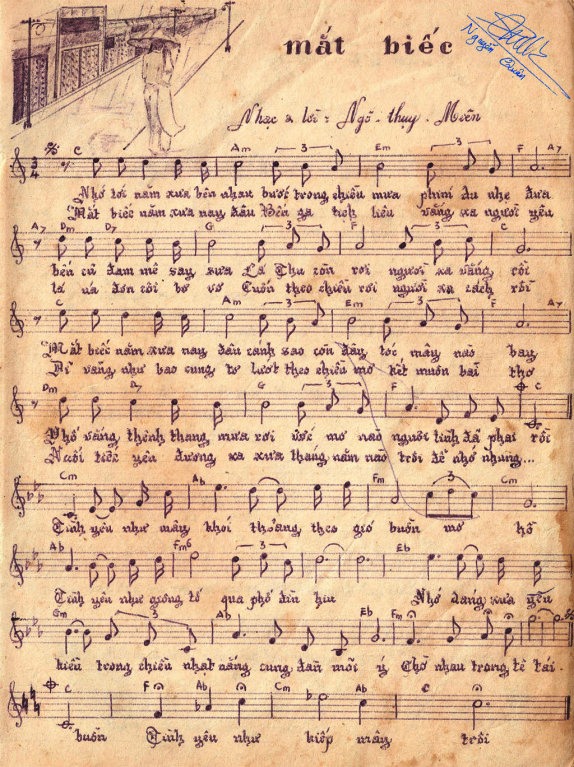 mắt biếc
Nguyễn
Nhạc & lời : Ngô - thụy - Miên
C Am Em F A7
Nhớ tới năm xưa bên nhau bước trong chiều mưa phím du nhẹ đưa
Mắt biếc năm xưa nay đâu Bến ga tịch liêu vắng xa người yêu
A7 Dm D7 G F C
bến cũ đam mê say sưa Lá Thu còn rơi người xa vắng rồi
lá úa đơn côi bơ vơ Cuốn theo chiều rơi người xa cách rồi
C Am Em F A7
Mắt biếc năm xưa nay đâu cánh sao còn đây tóc mây nào bay
Dĩ vãng như bao cung tơ lướt theo chiều mơ kết muôn bài thơ
Dm D7 G F C
Phố vắng thênh thang mưa rơi ước mơ nào người tình đã phai rồi
Nuối tiếc yêu đương xa xưa tháng năm nào trôi để nhớ nhung...
Cm Ab Fm Cm
Tình yêu như mây khói thoáng theo gió buồn mơ hồ
Ab Fm6 Eb
Tình yêu như giông tố qua phố đìu hiu Nhớ dáng xưa yêu
Gm Ab Eb Fm G
kiều trong chiều nhạt nắng cung đàn mới ý Chờ nhau trong tê tái.
C F Ab Cm Ab C
buồn Tình yêu như kiếp mây trôi